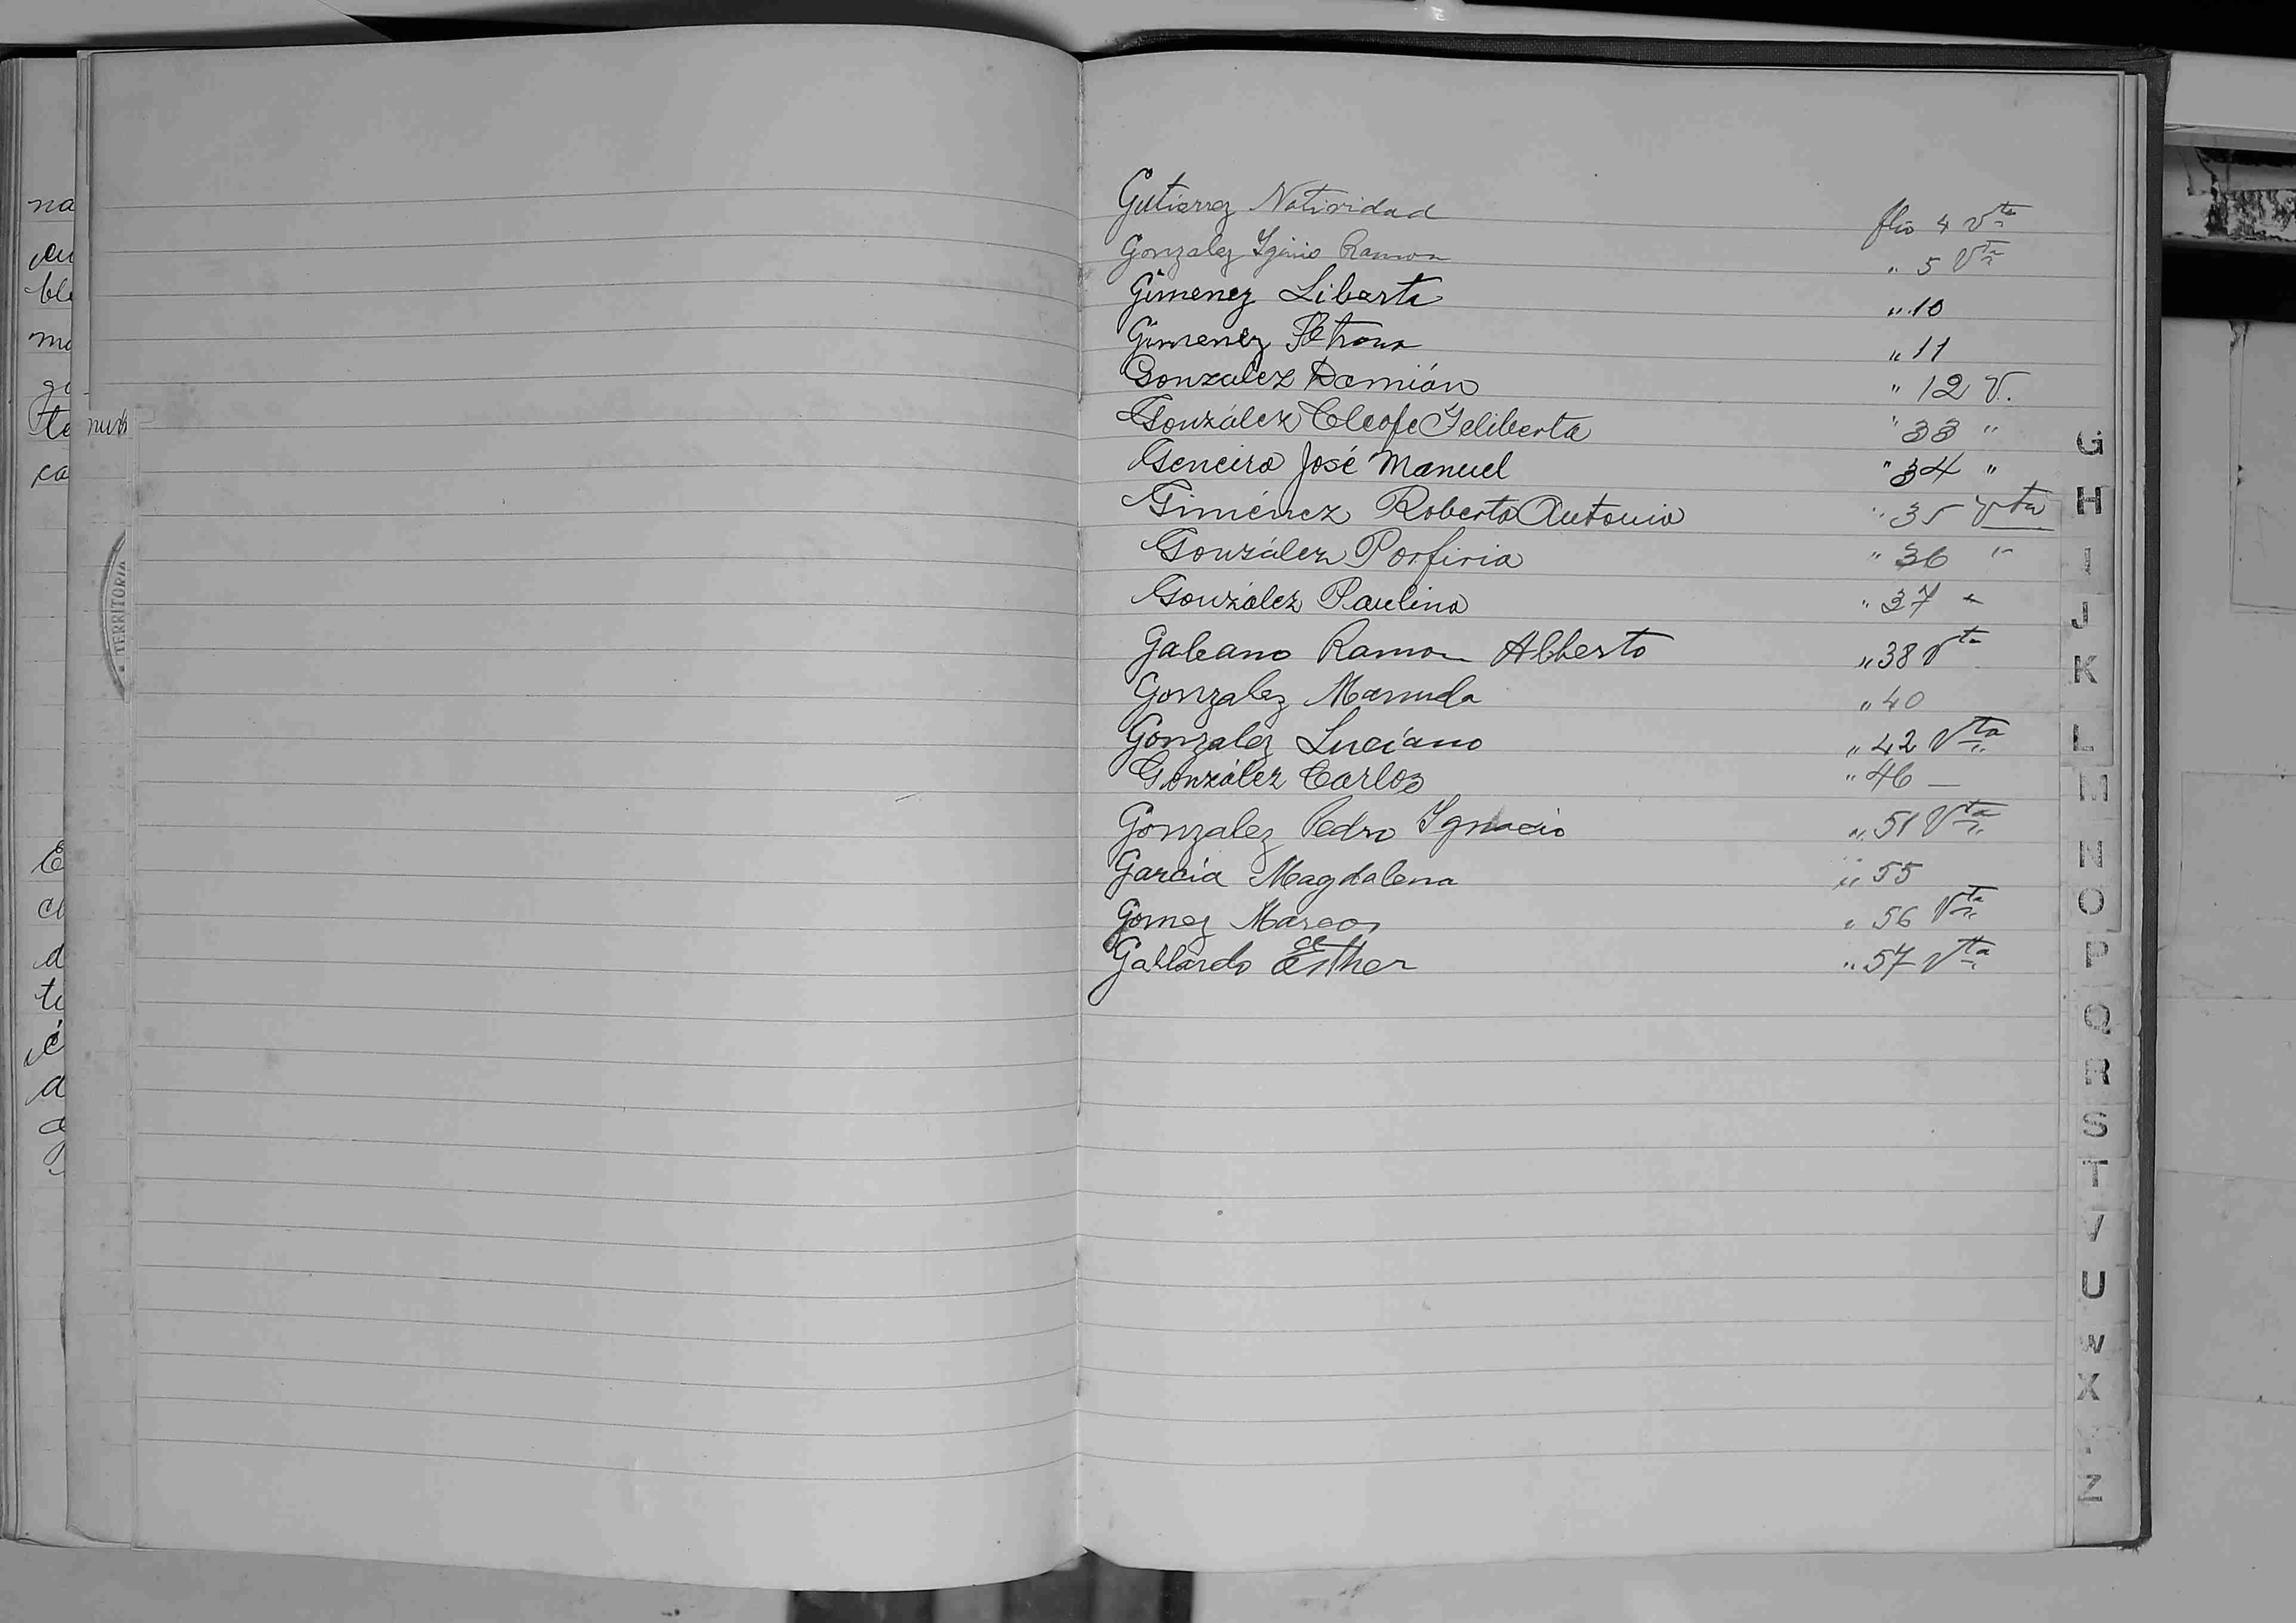 Gutierrez Natividad flio 4 Vta
Gonzalez Iginio Ramon " 5 Vta
Gimenez Liberta " 10
Gimenez Petrona " 11
Gonzalez Damián " 12 V.
González Cleofe Feliberta " 33 "
Geneiro José Manuel " 34 "
Giménez Roberto Antonio " 35 Vta
González Porfiria " 36 "
González Paulino " 37 "
Galeano Ramon Alberto " 38 Vta
Gonzalez Manuela " 40
Gonzalez Luciano " 42 Vta
González Carlos " 46 —
Gonzalez Pedro Ignacio " 51 Vta
García Magdalena " 55
Gomez Marcos " 56 Vta
Gallardo Esther " 57 Vta
G
H
I
J
K
L
M
N
O
P
Q
R
S
T
V
U
W
X
Y
Z
na
ble
ma
te
ca
TERRITORIA